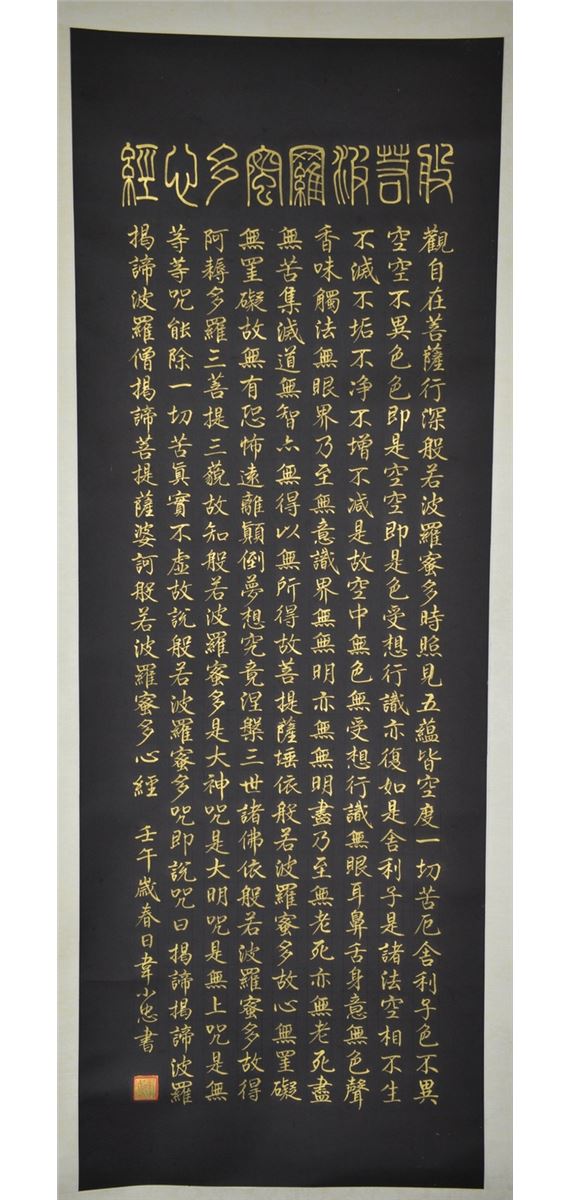 般若波羅蜜多心經
觀自在菩薩行深般若波羅蜜多時照見五蘊皆空度一切苦厄舍利子色不異
空空不異色色即是空空即是色受想行識亦復如是舍利子是諸法空相不生
不滅不垢不净不增不减是故空中無色無受想行識無眼耳鼻舌身意無色聲
香味觸法無眼界乃至無意識界無無明亦無無明盡乃至無老死亦無老死盡
無苦集滅道無智亦無得以無所得故菩提薩埵依般若波羅蜜多故心無罣礙
無罣礙故無有恐怖遠離顛倒夢想究竟涅槃三世諸佛依般若波羅蜜多故得
阿耨多羅三菩提三藐故知般若波羅蜜多是大神咒是大明咒是無上咒是無
等等咒能除一切苦真實不虛故說般若波羅蜜多咒即說咒曰揭諦揭諦波羅
揭諦波羅僧揭諦菩提薩婆訶般若波羅蜜多心經 壬午歲春日韋小忠書